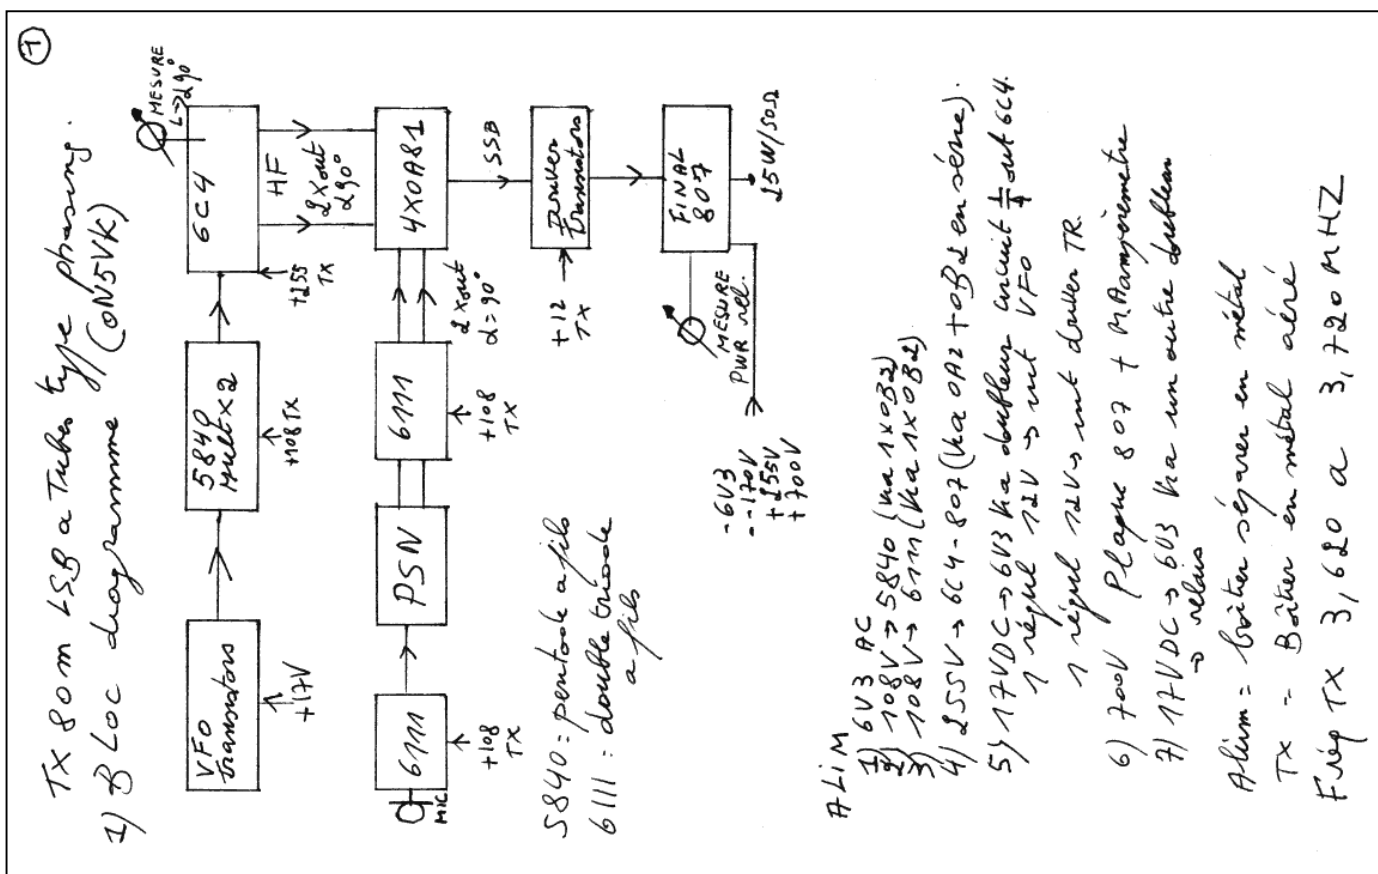 1
TX 80m LSB a Tubes type phasing.
1) BLOC diagramme (ON5VK)
VFO
transistors
+17V
5840
Mult x2
+108 TX
6C4
+255
TX
MESURE
L→290°
HF
2 x out
290°
MIC
6111
+108
TX
PSN
6111
+108
TX
2 x out
α=90°
4XOA81
SSB
Driver
transistors
+12
TX
FINAL
807
25W/50Ω
MESURE
PWR rel.
-6V3
--170V
+255V
+700V
5840 = pentode a fils
6111 = double triode
a fils
ALIM
1) 6V3 AC
2) 108V → 5840 (via 1x0B2)
3) 108V → 6111 (via 1x0B2)
4) 255V → 6C4 - 807 (via 0A2 + 0B2 en série).
5) 17VDC → 6V3 via doubleur circuit 1/4 sut 6C4.
1 régul 12V → unit VFO
1 régul 12V → unit driver TR.
6) 700V Plaque 807 + MAampèremètre
7) 17VDC → 6V3 via un autre doubleur
→ relais
Alim = boîtier séparer en métal
TX - Boîtier en métal aéré
Fréq TX 3,620 a 3,720 MHZ